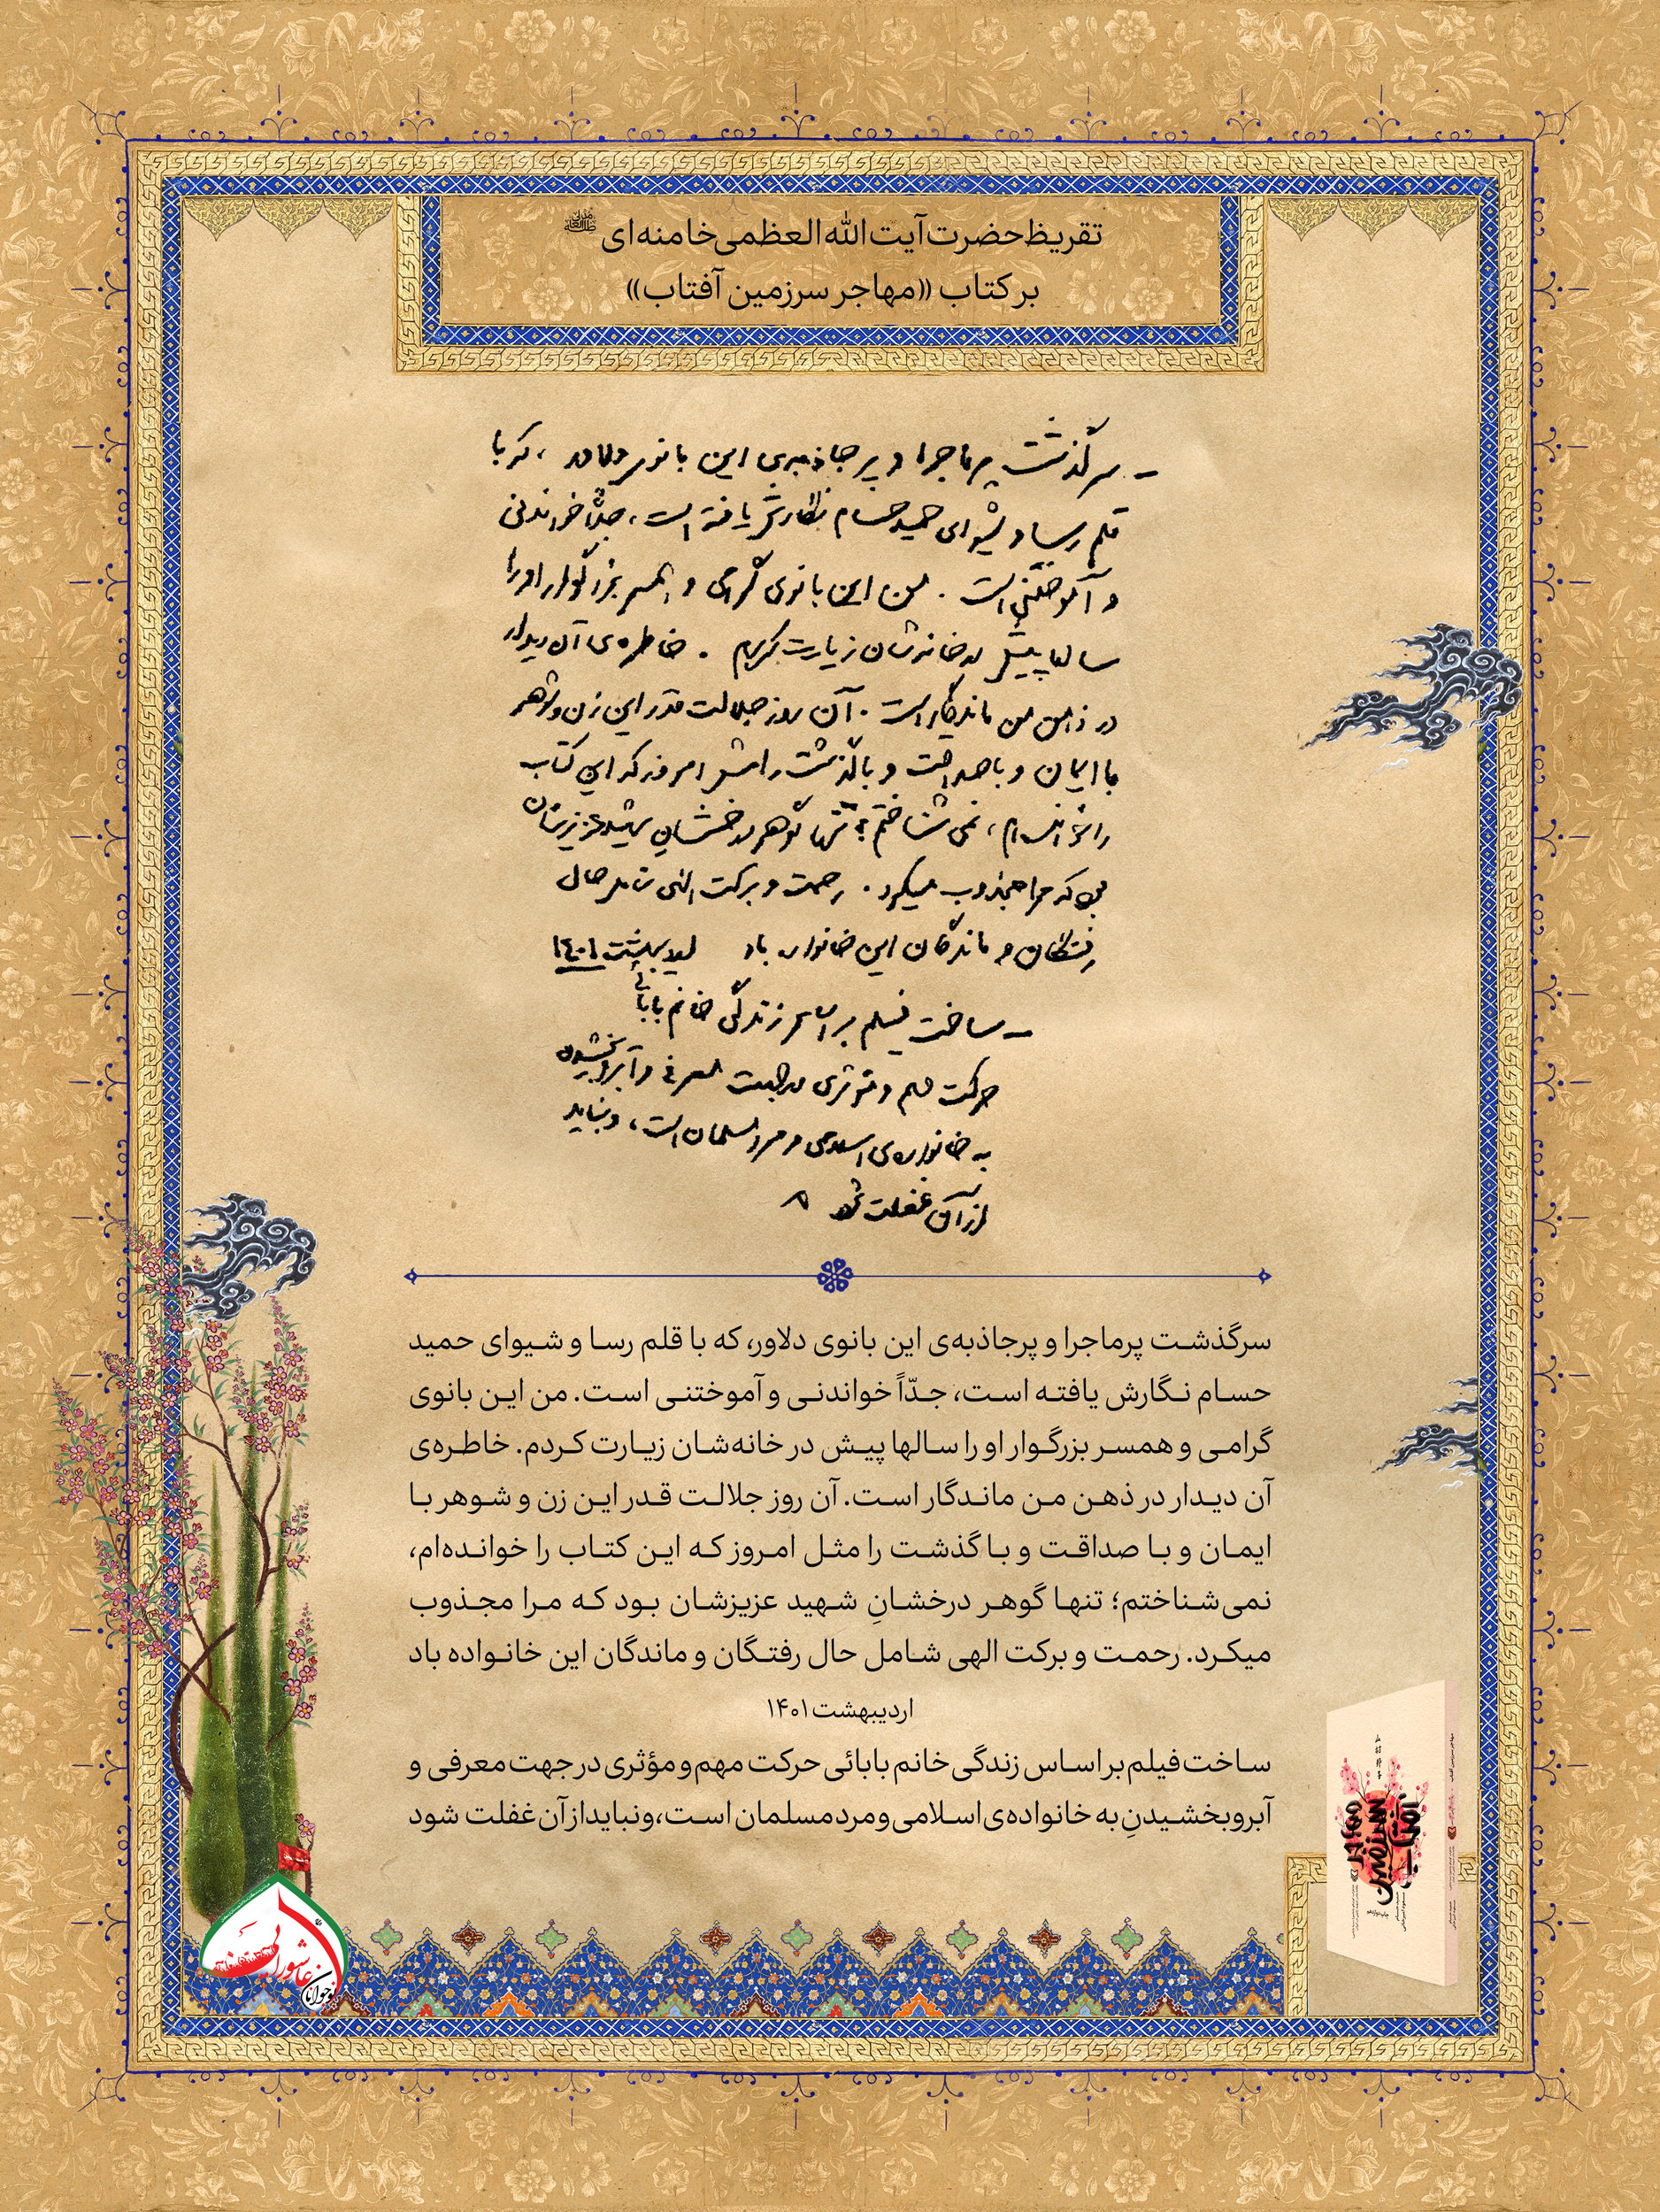 تقریظ حضرت آیت الله العظمی خامنه‌ای
بر کتاب «مهاجر سرزمین آفتاب»
ـ سرگذشت پرماجرا و پرجاذبه‌ی این بانوی دلاور، که با
قلم رسا و شیوای حمید حسام نگارش یافته است، جدّاً خواندنی
و آموختنی است. من این بانوی گرامی و همسر بزرگوار او را
سالها پیش در خانه‌شان زیارت کردم. خاطره‌ی آن دیدار
در ذهن من ماندگار است. آن روز جلالت قدر این زن و شوهر
با ایمان و با صداقت و با گذشت را مثل امروز که این کتاب
را خوانده‌ام، نمی‌شناختم؛ تنها گوهر درخشانِ شهید عزیزشان
بود که مرا مجذوب میکرد. رحمت و برکت الهی شامل حال
رفتگان و ماندگان این خانواده باد اردیبهشت ۱۴۰۱
ـ ساخت فیلم بر اساس زندگی خانم بابائی
حرکت مهم و مؤثری در جهت معرفی و آبرو بخشیدن
به خانواده‌ی اسلامی و مرد مسلمان است، و نباید
از آن غفلت شود
سرگذشت پرماجرا و پرجاذبه‌ی این بانوی دلاور، که با قلم رسا و شیوای حمید
حسام نگارش یافته است، جدّاً خواندنی و آموختنی است. من این بانوی
گرامی و همسر بزرگوار او را سالها پیش در خانه‌شان زیارت کردم. خاطره‌ی
آن دیدار در ذهن من ماندگار است. آن روز جلالت قدر این زن و شوهر با
ایمان و با صداقت و با گذشت را مثل امروز که این کتاب را خوانده‌ام،
نمی‌شناختم؛ تنها گوهر درخشانِ شهید عزیزشان بود که مرا مجذوب
میکرد. رحمت و برکت الهی شامل حال رفتگان و ماندگان این خانواده باد
اردیبهشت ۱۴۰۱
ساخت فیلم بر اساس زندگی خانم بابائی حرکت مهم و مؤثری در جهت معرفی و
آبرو بخشیدنِ به خانواده‌ی اسلامی و مرد مسلمان است، و نباید از آن غفلت شود
مهاجر
سرزمین
آفتاب
نوجوانان عاشورایی